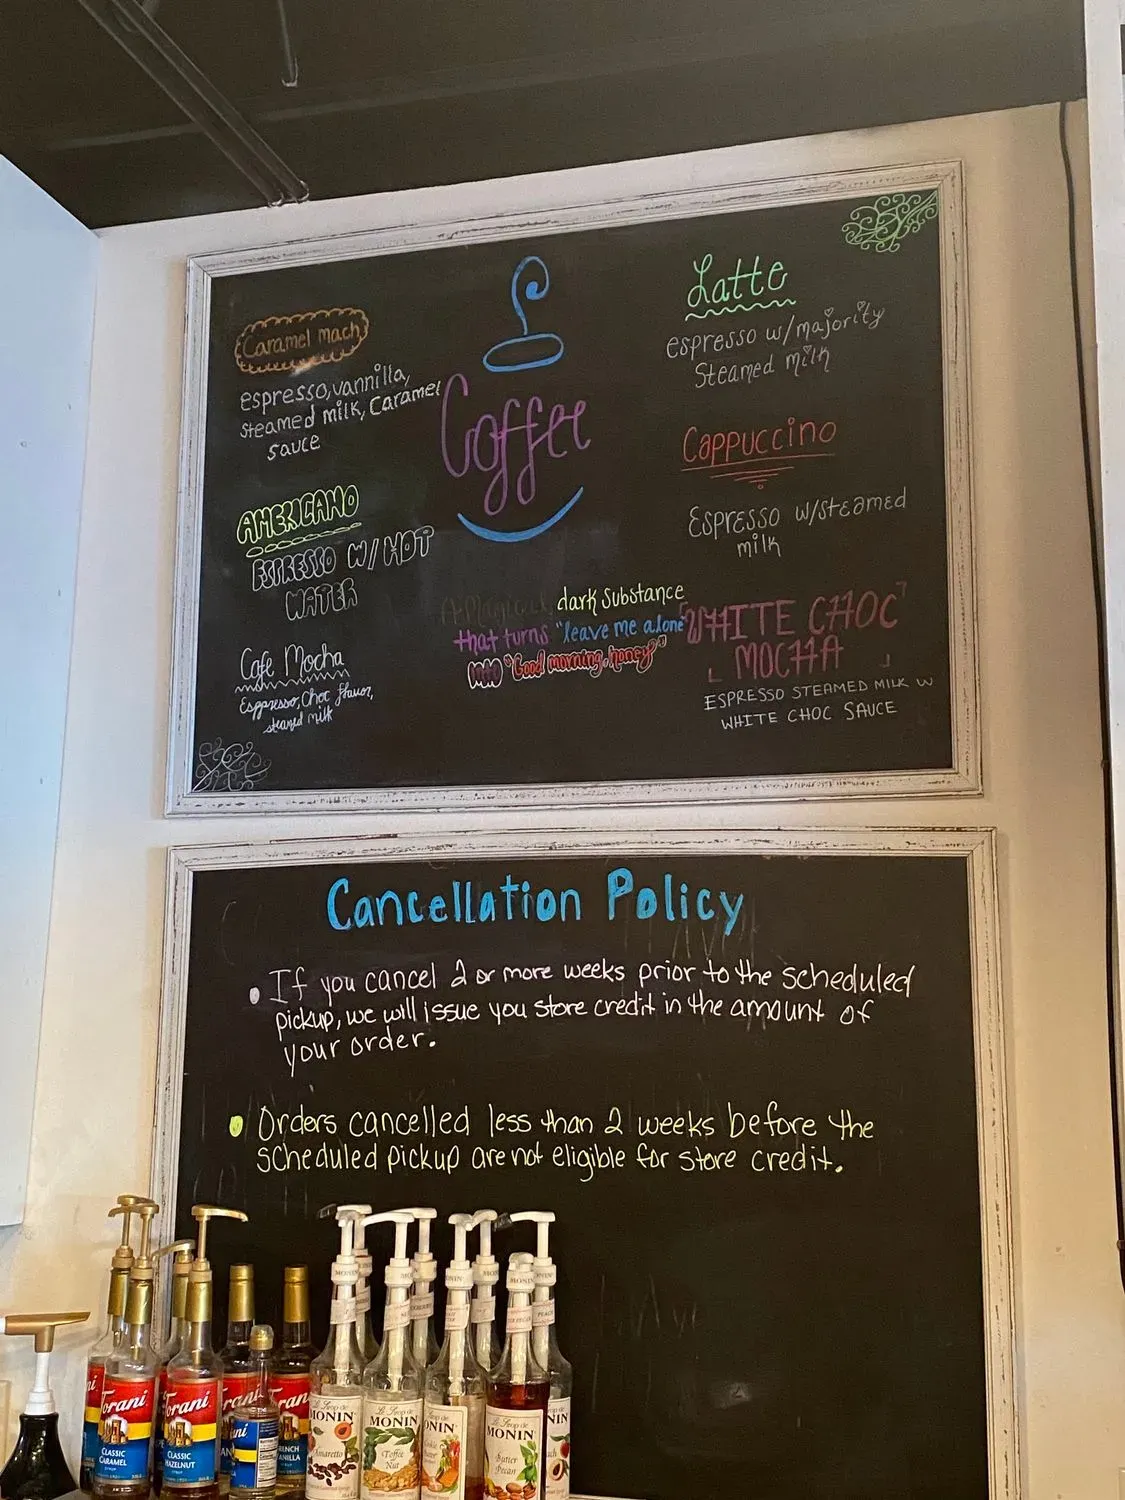 Caramel mach
espresso, vannilla,
steamed milk, Caramel
sauce
AMERICANO
ESPRESSO W/ HOT
WATER
Cafe Mocha
Esppresso, Choc flavor,
steamed milk
Coffee
A Magical, dark Substance
that turns "leave me alone"
into "Good morning, honey"
Latte
espresso w/majority
Steamed milk
Cappuccino
Espresso w/steamed
milk
WHITE CHOC
MOCHA
ESPRESSO STEAMED MILK W
WHITE CHOC SAUCE
Cancellation Policy
• If you cancel 2 or more weeks prior to the scheduled
pickup, we will issue you store credit in the amount of
your order.
• Orders cancelled less than 2 weeks before the
scheduled pickup are not eligible for store credit.
Torani
CLASSIC
CARAMEL
Torani
CLASSIC
HAZELNUT
MONIN
Amaretto
MONIN
Toffee
Nut
MONIN
Butter
Pecan